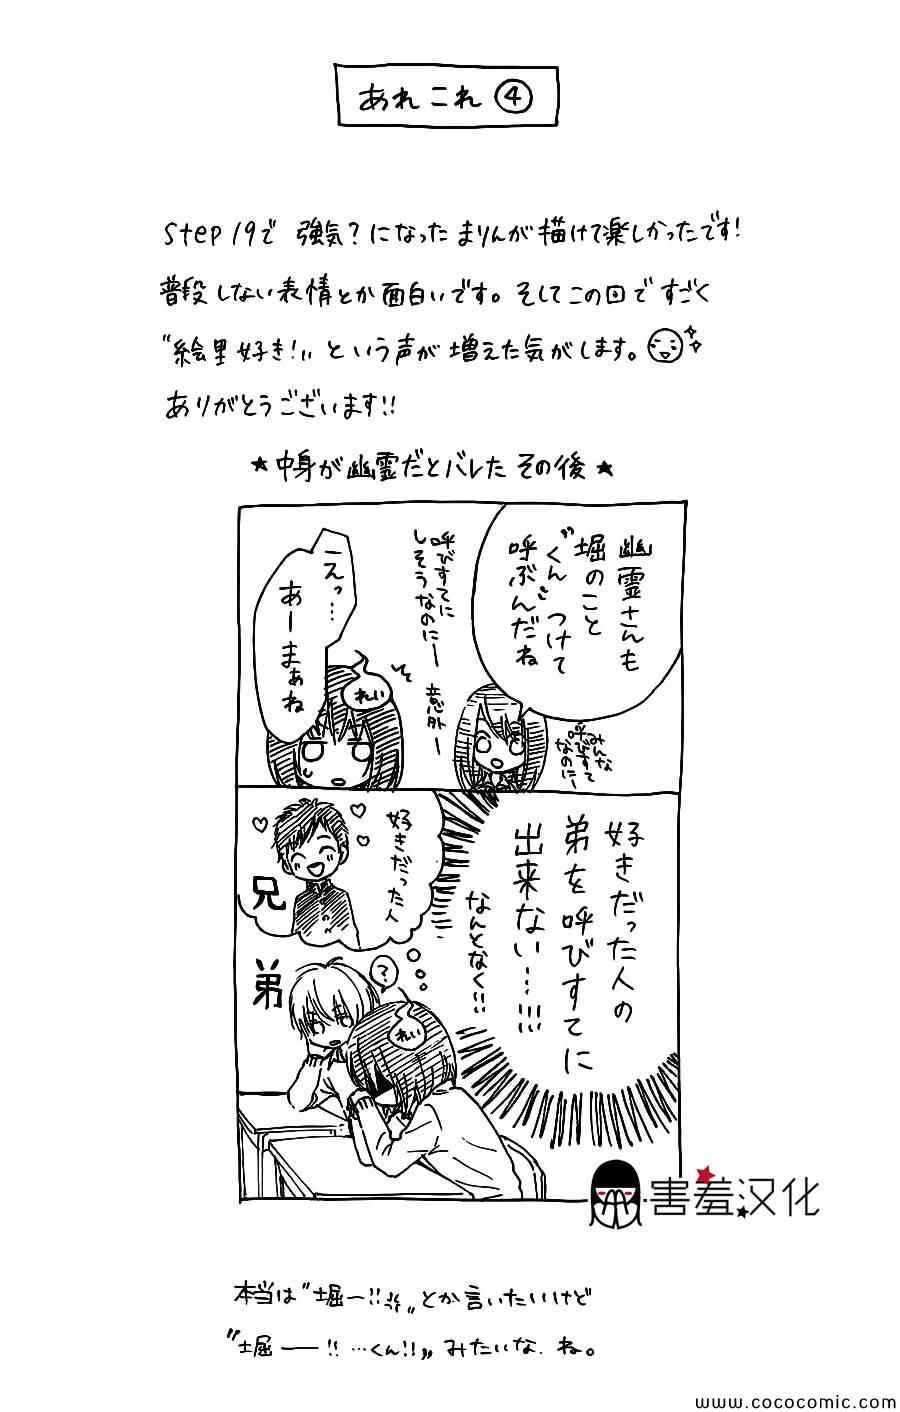 あれこれ④
Step19で 強気？になったまりんが描けて楽しかったです！
普段しない表情とか面白いです。そしてこの回ですごく
〝絵里好き！〟という声が増えた気がします。
ありがとうございます!!
★中身が幽霊だとバレたその後★
幽霊さんも
堀のこと
〝くん〟つけて
呼ぶんだね
みんな
呼びすて
なのにー
呼びすてに
しそうなのにー
意外ー
えっ…
あーまぁね
れい
好きだった人の
弟を呼びすてに
出来ない…!!!
なんとなく!!
好きだった人
兄
弟
？
れい
害羞汉化
本当は〝堀ー!!〟とか言いたいけど
〝堀ー!!…くん!!〟みたいな. ね。
www.cococomic.com